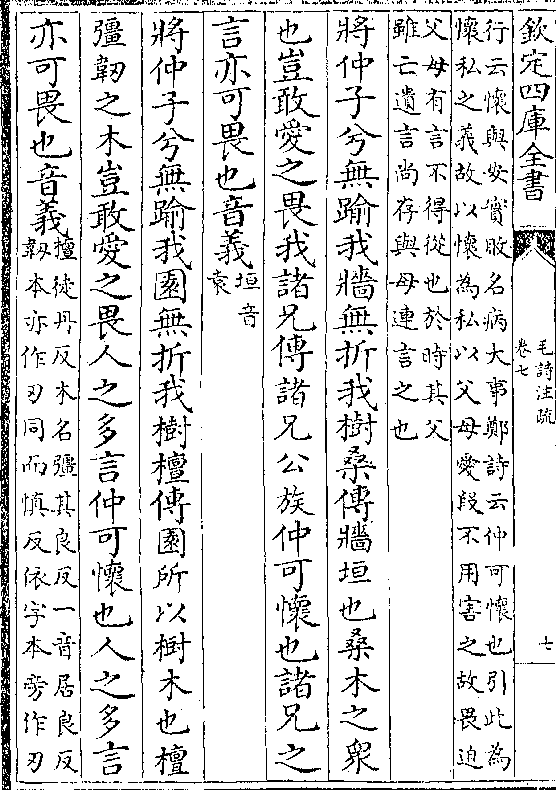 欽定四庫全書
毛詩注疏
卷七
七
行云懷與安實敗名病大事鄭詩云仲可懷也引此為
懷私之義故以懷為私以父母愛段不用害之故畏迫
父母有言不得從也於時其父
雖亡遺言尚存與母連言之也
將仲子兮無踰我牆無折我樹桑傳牆垣也桑木之衆
也豈敢愛之畏我諸兄傳諸兄公族仲可懷也諸兄之
言亦可畏也音義垣音
袁
將仲子兮無踰我園無折我樹檀傳園所以樹木也檀
彊韌之木豈敢愛之畏人之多言仲可懷也人之多言
亦可畏也音義檀徒丹反木名彊其良反一音居良反
韌本亦作刃同而慎反依字本旁作刃